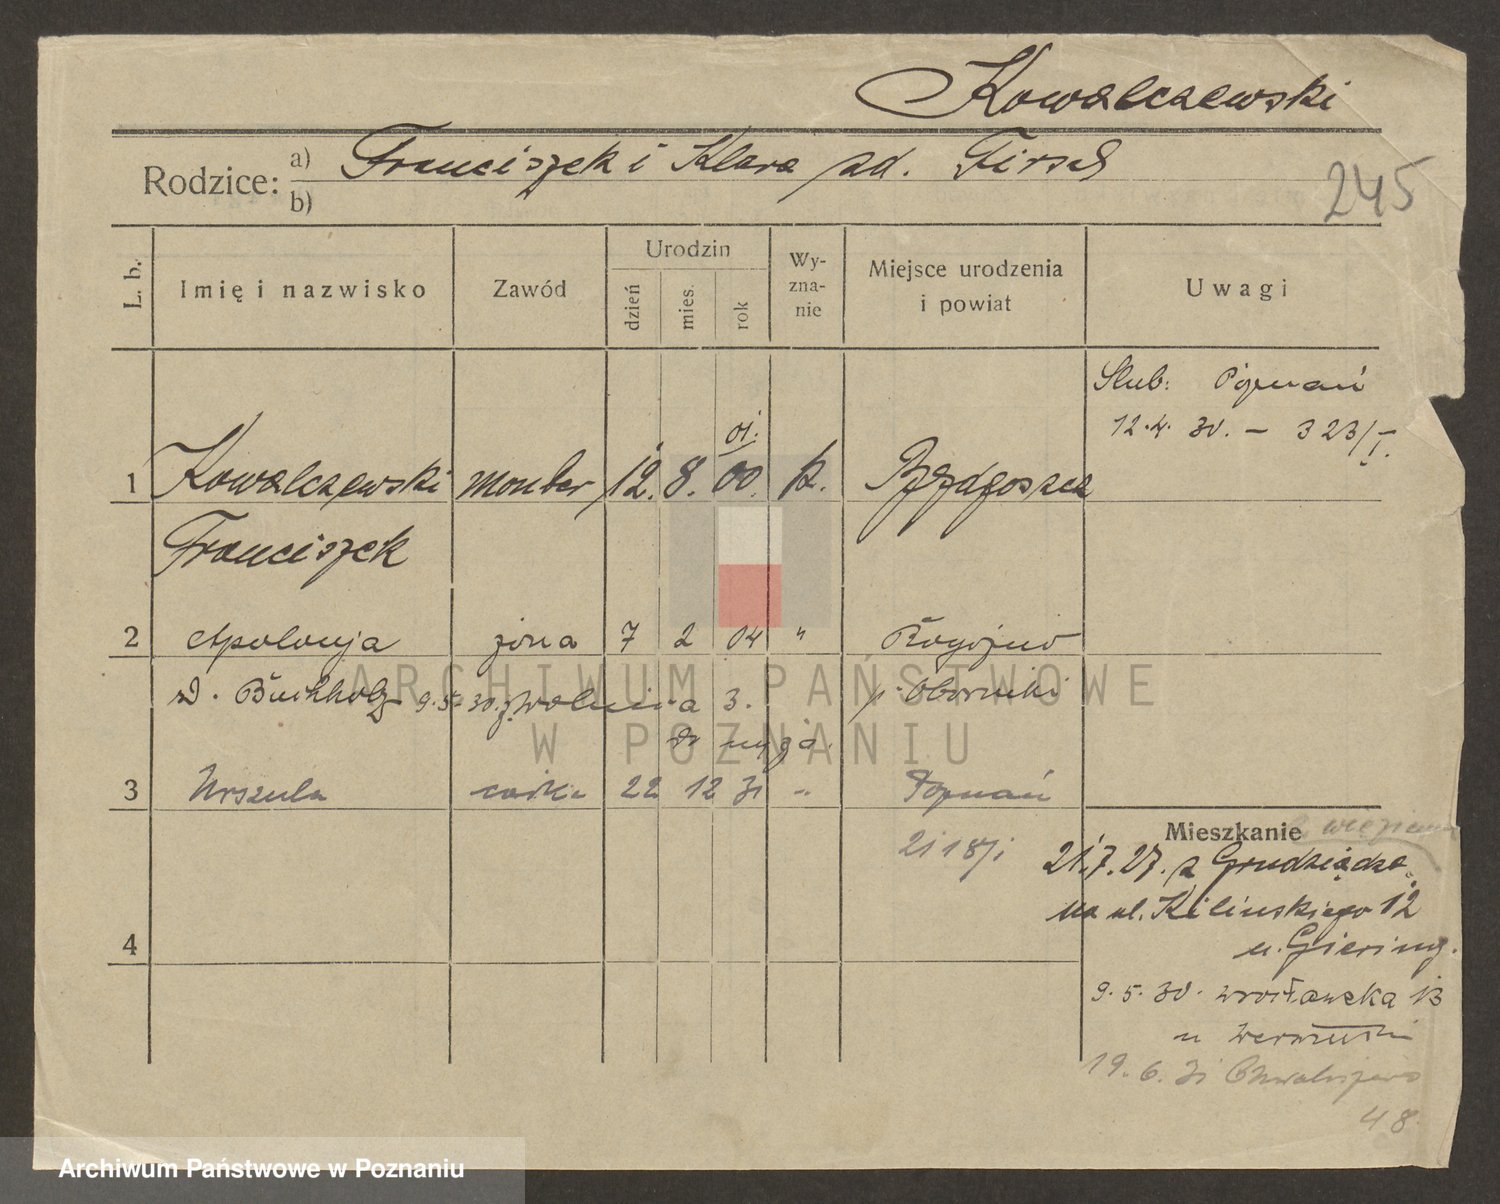 Kowalczewski
Rodzice: a) Franciszek i Klara zd. Firsel
b)
245
L. b.
Imię i nazwisko
Zawód
Urodzin
dzień
mies.
rok
Wy-
zna-
nie
Miejsce urodzenia
i powiat
Uwagi
Slub: Poznań
12.4. 30. – 323/I.
01.
1 Kowalczewski monter 12. 8. 00. k. Bydgoszcz
Franciszek
2 Apolonja żona 7 2 04 " Rogoźno
d. Buchholz 9.5.30. z Wolnica 3. p. Oborniki
3 Urszula córka 22 12 31 " Poznań
Mieszkanie
21.7.27. z Grudziądza
na ul. Kilinskiego 12
u. Giering.
4
9.5.30. Wrocławska 13
u
19.6.31 Chwaliszewo
48
ARCHIWUM PAŃSTWOWE
W POZNANIU
Archiwum Państwowe w Poznaniu